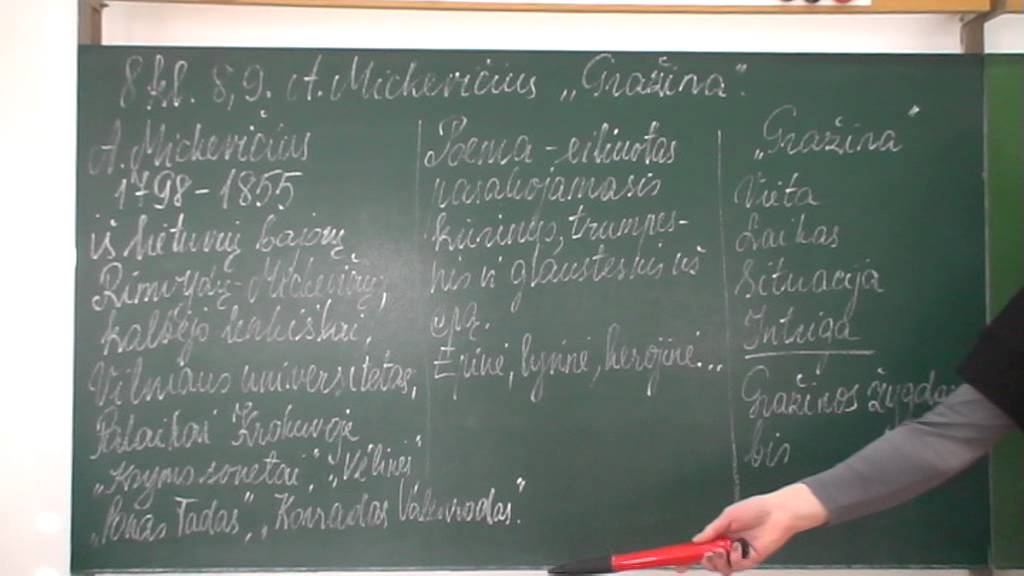 8 kl. 8,9. A. Mickevičius „Gražina".
A. Mickevičius
1798-1855
iš lietuvių bajorų
Rimvydų-Mickevičių,
kalbėjo lenkiškai,
Vilniaus universitetas,
Palaikai Krokuvoje
„Krymo sonetai", „Vėlinės"
„Ponas Tadas", „Konradas Valenrodas".
Poema - eiliuotas
pasakojamasis
kūrinys, trumpes-
nis ir glaustesnis už
epą.
Epinė, lyrinė, herojinė...
„Gražina"
Vieta
Laikas
Situacija
Intriga
Gražinos žygdar
bis